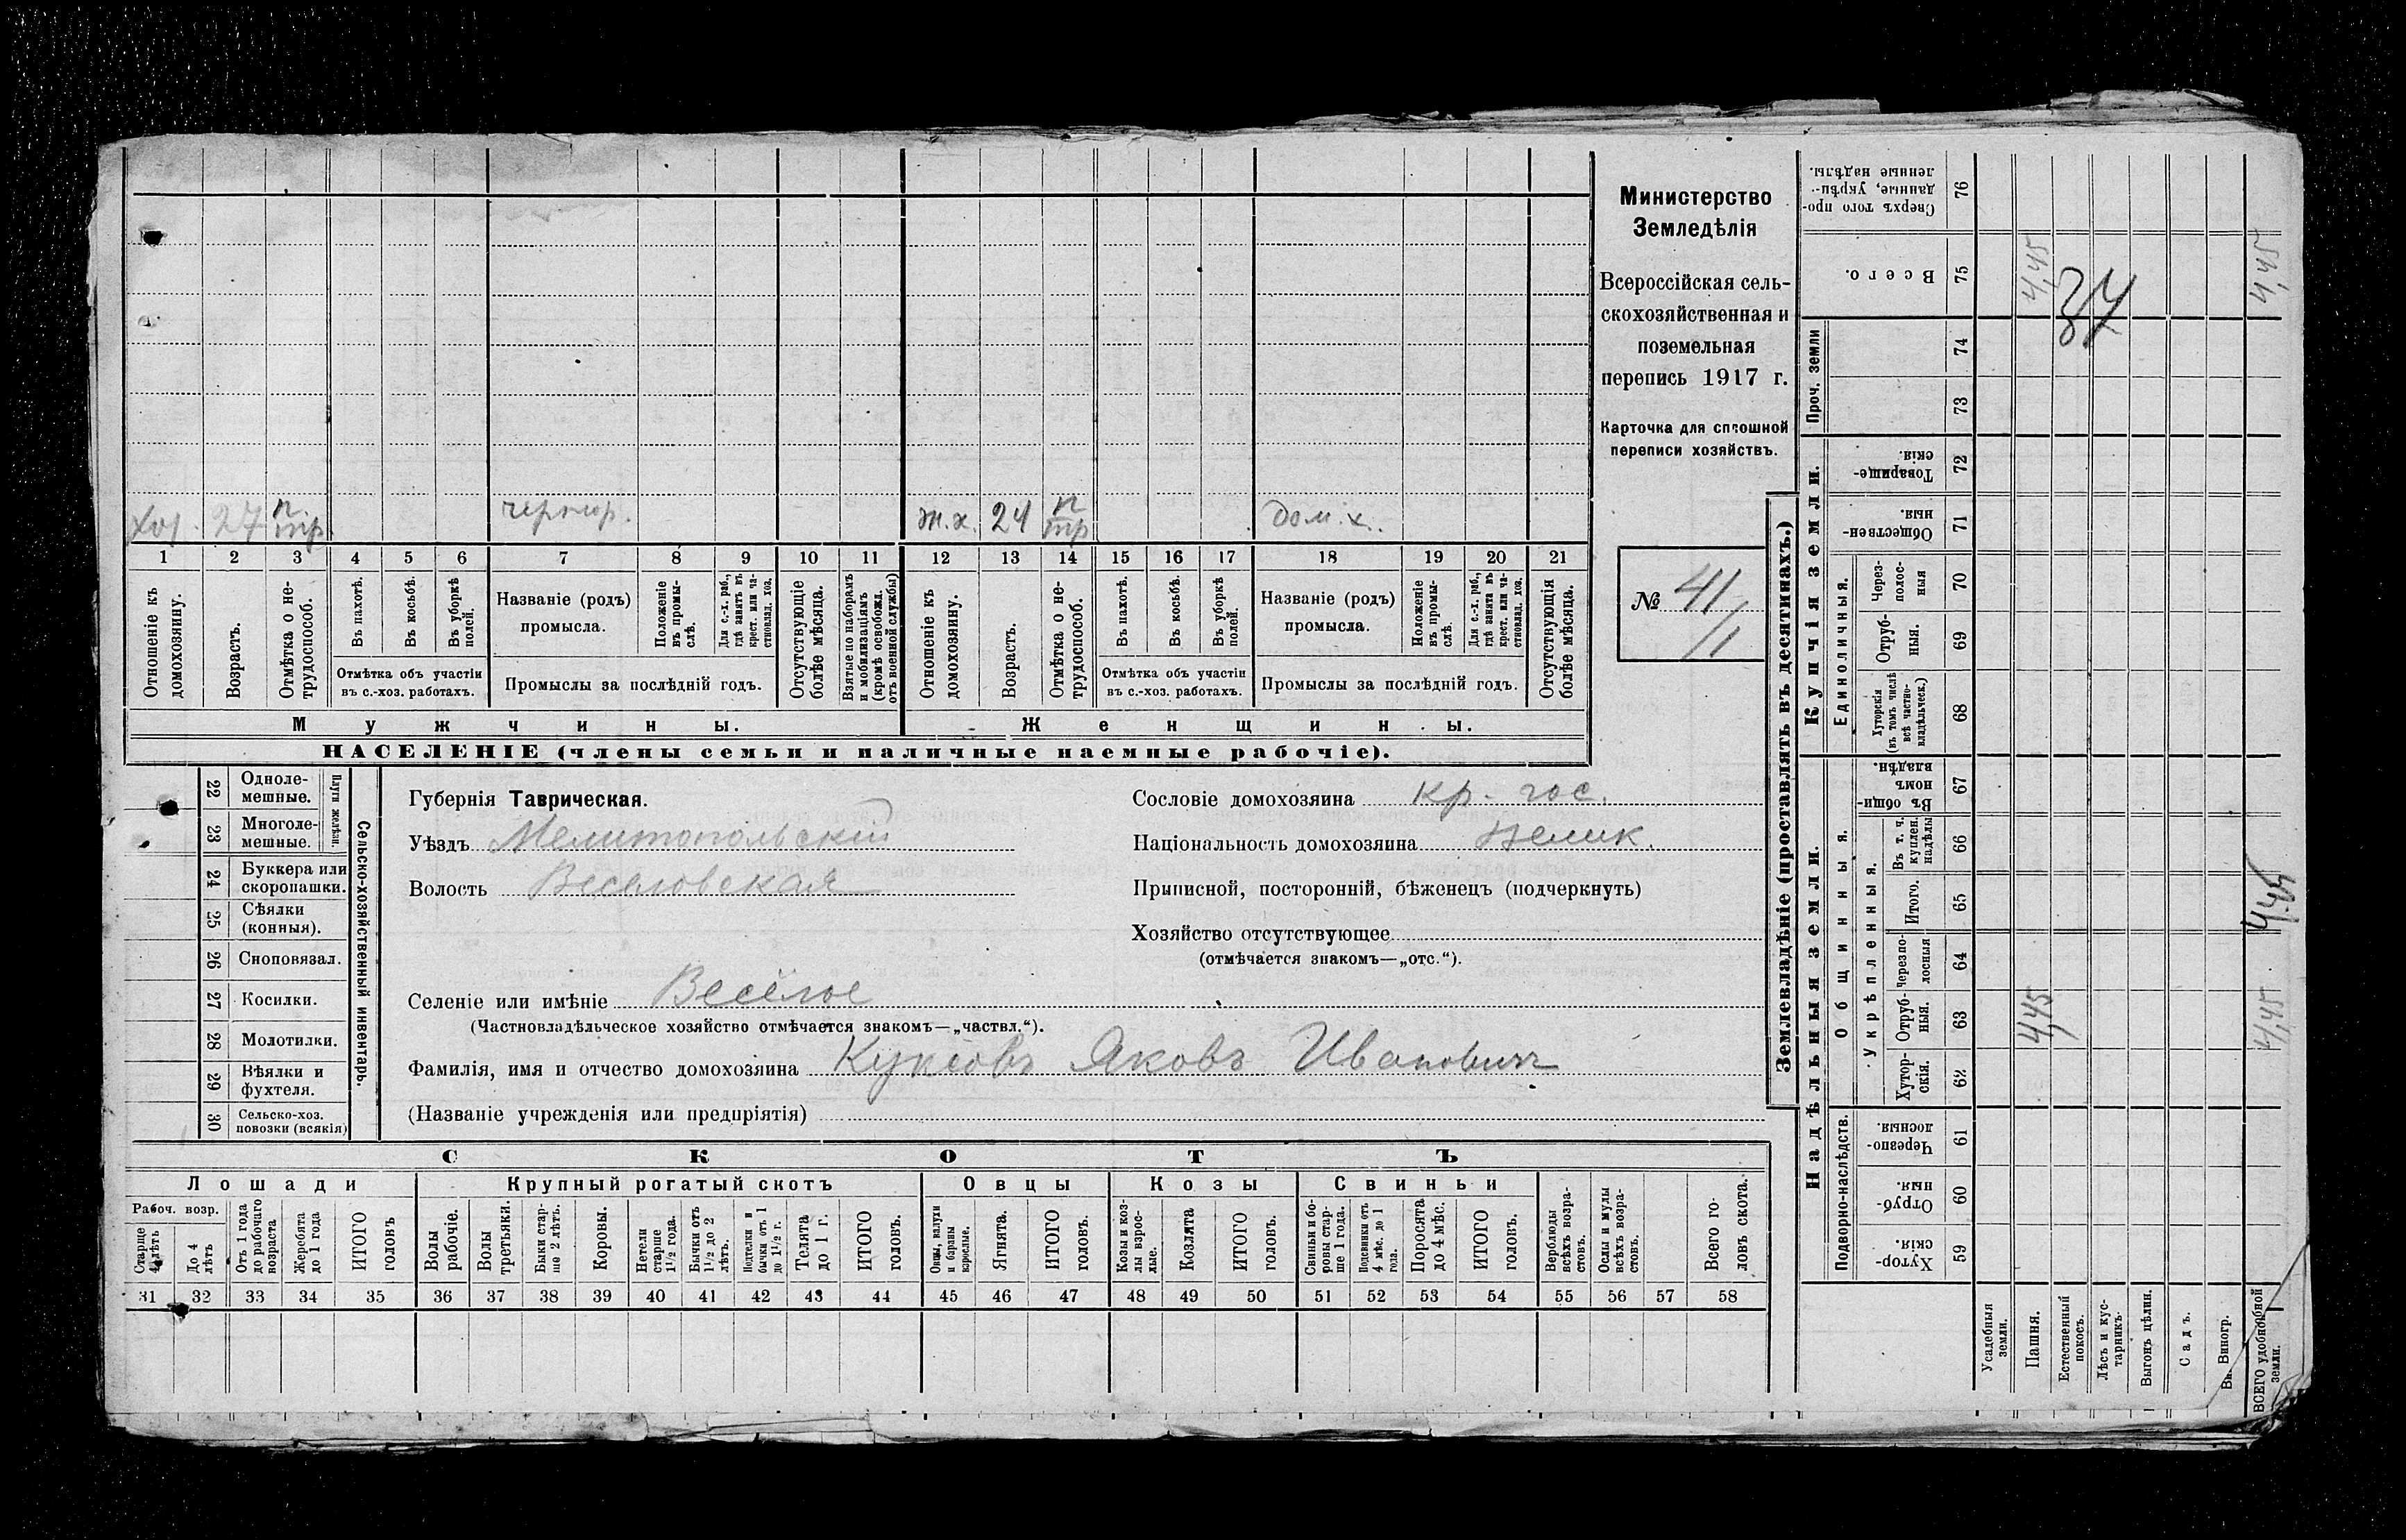 хоз. 27 п. тр. чернор. ж.х. 24 п тр дом.х.
1 2 3 4 5 6 7 8 9 10 11 12 13 14 15 16 17 18 19 20 21
Отношеніе къ домохозяину.
Возрастъ.
Отмѣтка о не-трудоспособ.
Въ пахотѣ.
Въ косьбѣ.
Въ уборкѣ полей.
Отмѣтка объ участіи
въ с.-хоз. работахъ.
Названіе (родъ)
промысла.
Положеніе въ промы-слѣ.
Для с.-х. раб., гдѣ занятъ въ крест. или ча-стновлад. хоз.
Промыслы за послѣдній годъ.
Отсутствующіе болѣе мѣсяца.
Взятые по наборамъ и мобилизаціямъ (кромѣ освобожд. отъ военной службы)
Отношеніе къ домохозяину.
Возрастъ.
Отмѣтка о не-трудоспособ.
Въ пахотѣ.
Въ косьбѣ.
Въ уборкѣ полей.
Отмѣтка объ участіи
въ с.-хоз. работахъ.
Названіе (родъ)
промысла.
Положеніе въ промы-слѣ.
Для с.-х. раб., гдѣ занята въ крест. или ча-стновлад. хоз.
Промыслы за послѣдній годъ.
Отсутствующія болѣе мѣсяца.
Мужчины. Женщины.
НАСЕЛЕНІЕ (члены семьи и наличные наемные рабочіе).
Министерство
Земледѣлія
Всероссійская сель-
скохозяйственная и
поземельная
перепись 1917 г.
Карточка для сплошной
переписи хозяйствъ.
№ 41
11
22 Одноле-мешные.
23 Многоле-мешные.
Плуги желѣзн.
24 Буккера или скоропашки.
25 Сѣялки (конныя).
26 Сноповязал.
27 Косилки.
28 Молотилки.
29 Вѣялки и фухтеля.
30 Сельско-хоз. повозки (всякія)
Сельско-хозяйственный инвентарь.
Губернія Таврическая.
Уѣздъ Мелитопольскій
Волость Веселовская
Селеніе или имѣніе Весёлое
(Частновладѣльческое хозяйство отмѣчается знакомъ—„частвл.“).
Фамилія, имя и отчество домохозяина Куксовъ Яковъ Ивановичъ
(Названіе учрежденія или предпріятія)
Сословіе домохозяина кр. гос.
Національность домохозяина Велик.
Приписной, посторонній, бѣженецъ (подчеркнуть)
Хозяйство отсутствующее
(отмѣчается знакомъ—„отс.“).
СКОТЪ
Лошади Крупный рогатый скотъ Овцы Козы Свиньи
Рабоч. возр.
Старше 4 лѣтъ
До 4 лѣтъ
Отъ 1 года до рабочаго возраста
Жеребята до 1 года
ИТОГО головъ
Волы рабочіе.
Волы третьяки.
Быки стар-ше 2 лѣтъ.
Коровы.
Нетели старше 1½ года.
Бычки отъ 1½ до 2 лѣтъ.
Подтелки и бычки отъ 1 до 1½ г.
Телята до 1 г.
ИТОГО головъ.
Овцы, валухи и бараны взрослые.
Ягнята.
ИТОГО головъ.
Козы и коз-лы взрос-лые.
Козлята
ИТОГО головъ.
Свиньи и бо-ровы стар-ше 1 года.
Подсвинки отъ 4 мѣс. до 1 года.
Поросята до 4 мѣс.
ИТОГО головъ.
Верблюды всѣхъ возра-стовъ.
Ослы и мулы всѣхъ возра-стовъ.
Всего го-ловъ скота.
31 32 33 34 35 36 37 38 39 40 41 42 43 44 45 46 47 48 49 50 51 52 53 54 55 56 57 58
Землевладѣніе (проставлять въ десятинахъ.)
Сверхъ того про-данные, укрѣп-ленные надѣлы. 76
Всего. 75 4,45 4,45
37
Проч. земли 74
73
Купчія земли.
Товарище-скія. 72
Обществен-ныя. 71
Единоличныя.
Через-полос-ныя 70
Отруб-ныя. 69
Хуторскія (въ томъ числѣ всѣ частно-владѣльческ.) 68
Надѣльныя земли.
Общинныя.
Въ общин-номъ владѣн. 67
Укрѣпленныя.
Въ т. ч. куплен. надѣлы 66
Итого. 65 4,45
Черезпо-лосныя 64
Отруб-ныя. 63 4,45 4,45
Хутор-скія. 62
Подворно-наслѣдств.
Черезпо-лосныя. 61
Отруб-ныя. 60
Хутор-скія. 59
Усадебныя земли.
Пашня.
Естественный покосъ.
Лѣсъ и кус-тарникъ.
Выгонъ цѣлин.
Садъ.
Виногр.
ВСЕГО удобной земли.